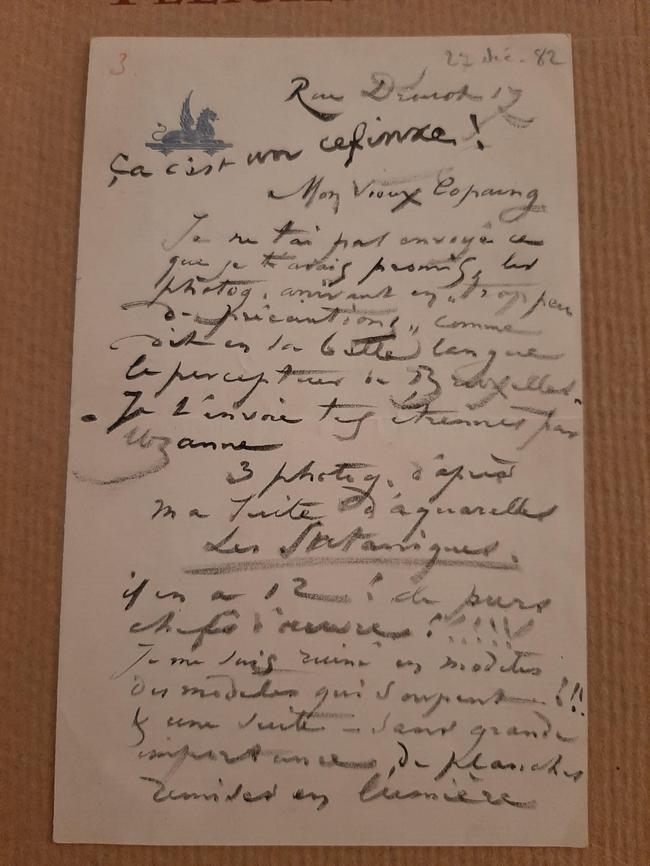 3
27 déc. 82
Rue Drouot 17
Ça c'est mon cefinxe!
Mon Vieux Copaing
Je ne t'ai pas envoyé ce
que je t'avais promis, les
photog. arrivant en "trop peu
de précautions", comme
dit en sa belle langue
le percepteur de Bruxelles.
Je t'envoie tes étrennes par
Uzanne
3 photog. d'après
ma suite d'aquarelles
Les Sataniques.
il y en a 12! de purs
chefs d'œuvre!!!!!
Je me suis ruiné en modèles
des modèles qui soupent!!!
& une suite – sans grande
importance, de planches
remises en lumière